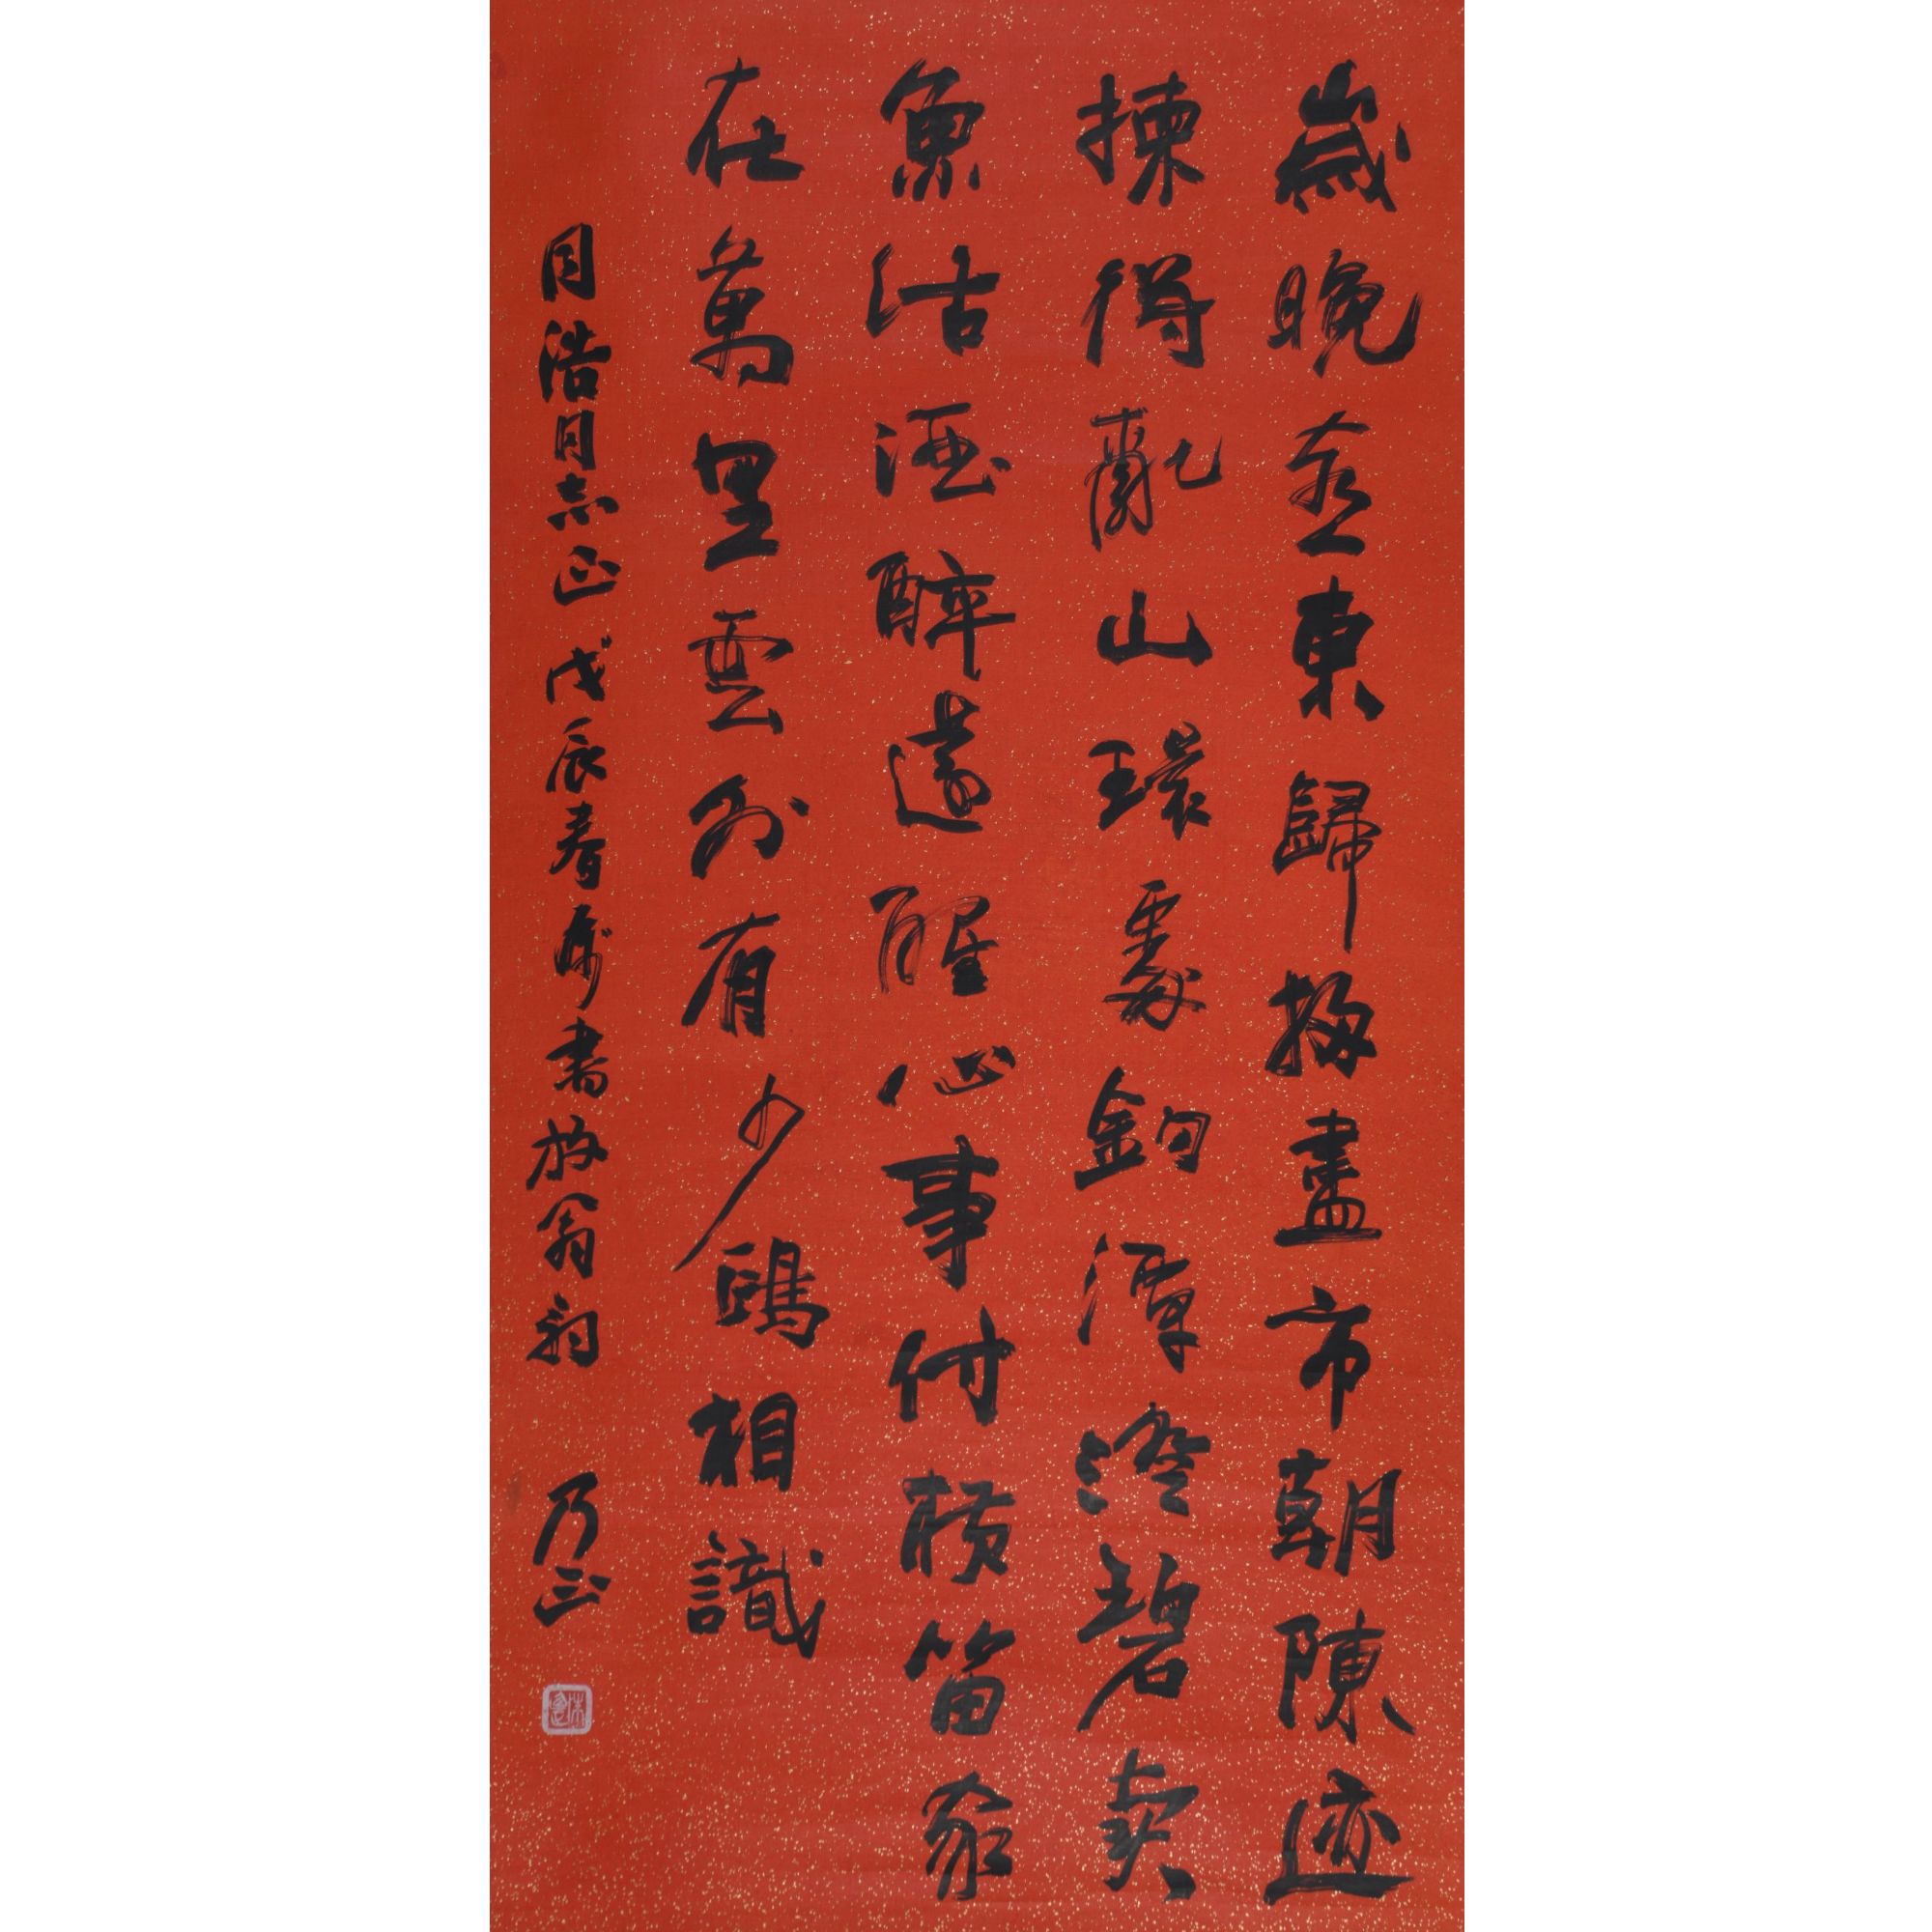 歲晚喜東歸掃盡市朝陳迹
揀得亂山環處釣潭澄碧卖
魚沽酒醉還醒心事付横笛家
在萬里雲外有少鷗相識
周浩同志正 戊辰春 書放翁詞 乃正